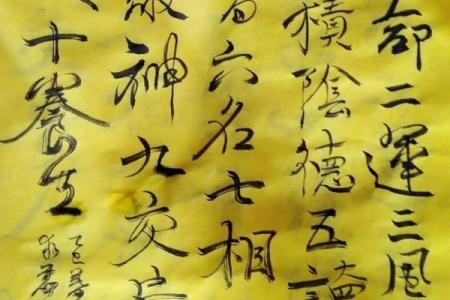 命二運三風
積陰德五讀
六名七相
神九交
十養生